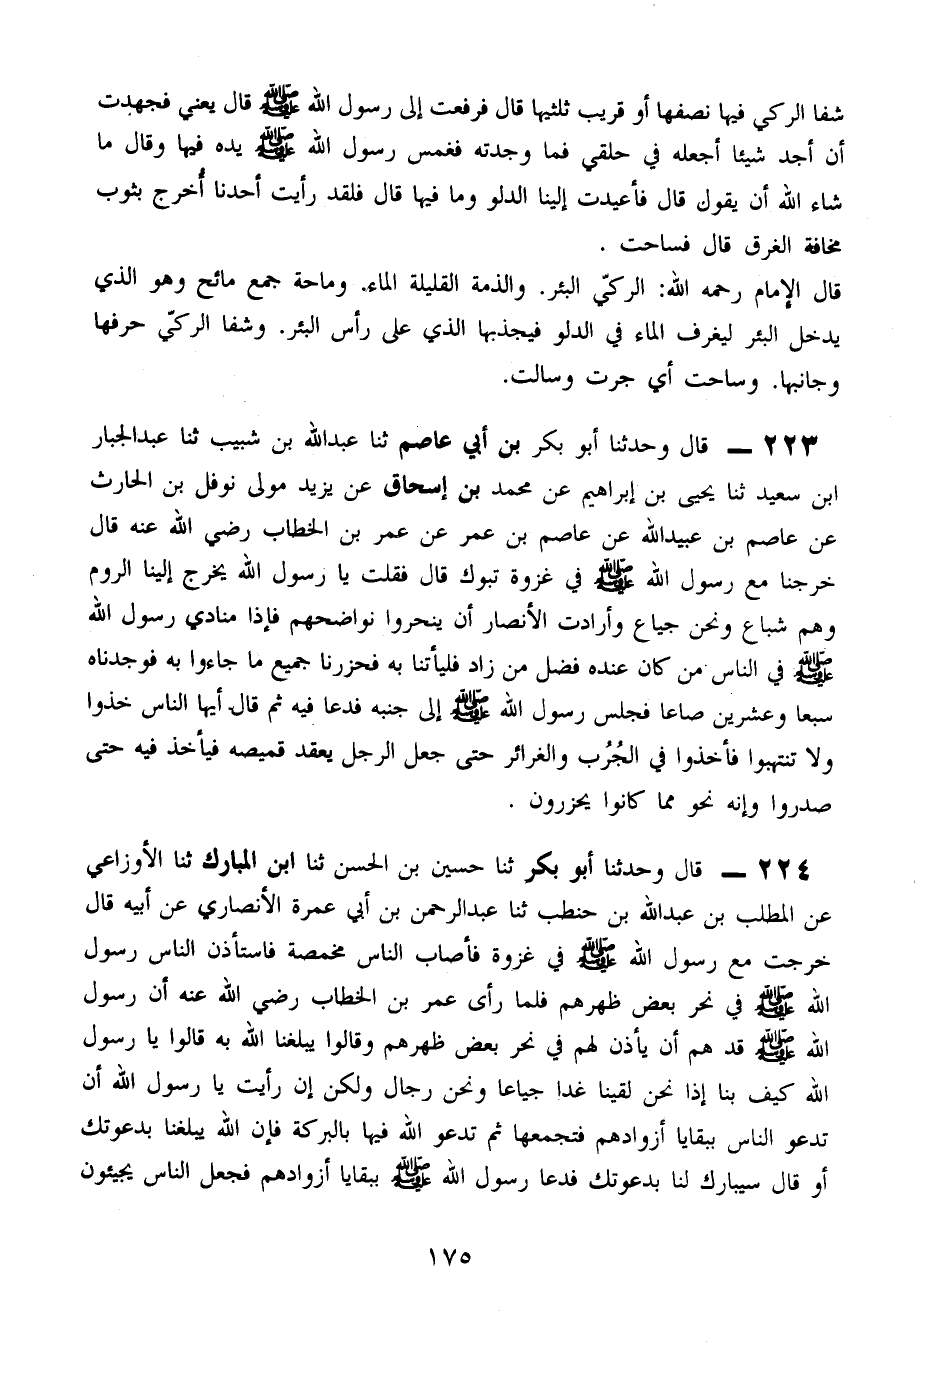 شفا الركي فيها نصفها أو قريب ثلثيها قال فرفعت إلى رسول الله ﷺ قال يعني فجهدت
أن أجد شيئا أجعله في حلقي فما وجدته فغمس رسول الله ﷺ يده فيها وقال ما
شاء الله أن يقول قال فأعيدت إلينا الدلو وما فيها قال فلقد رأيت أحدنا أُخرج بثوب
مخافة الغرق قال فساحت .
قال الإمام رحمه الله: الركيّ البئر. والذمة القليلة الماء. وماحة جمع مائح وهو الذي
يدخل البئر ليغرف الماء في الدلو فيجذبها الذي على رأس البئر. وشفا الركيّ حرفها
وجانبها. وساحت أي جرت وسالت.
٢٢٣ ــ قال وحدثنا أبو بكر بن أبي عاصم ثنا عبدالله بن شبيب ثنا عبدالجبار
ابن سعيد ثنا يحيى بن إبراهيم عن محمد بن إسحاق عن يزيد مولى نوفل بن الحارث
عن عاصم بن عبيدالله عن عاصم بن عمر عن عمر بن الخطاب رضي الله عنه قال
خرجنا مع رسول الله ﷺ في غزوة تبوك قال فقلت يا رسول الله يخرج إلينا الروم
وهم شباع ونحن جياع وأرادت الأنصار أن ينحروا نواضحهم فإذا منادي رسول الله
ﷺ في الناس من كان عنده فضل من زاد فليأتنا به فحزرنا جميع ما جاءوا به فوجدناه
سبعا وعشرين صاعا فجلس رسول الله ﷺ إلى جنبه فدعا فيه ثم قال أيها الناس خذوا
ولا تنتهبوا فأخذوا في الجُرُب والغرائر حتى جعل الرجل يعقد قميصه فيأخذ فيه حتى
صدروا وإنه نحو مما كانوا يحزرون .
٢٢٤ ــ قال وحدثنا أبو بكر ثنا حسين بن الحسن ثنا ابن المبارك ثنا الأوزاعي
عن المطلب بن عبدالله بن حنطب ثنا عبدالرحمن بن أبي عمرة الأنصاري عن أبيه قال
خرجت مع رسول الله ﷺ في غزوة فأصاب الناس مخمصة فاستأذن الناس رسول
الله ﷺ في نحر بعض ظهرهم فلما رأى عمر بن الخطاب رضي الله عنه أن رسول
الله ﷺ قد هم أن يأذن لهم في نحر بعض ظهرهم وقالوا يبلغنا الله به قالوا يا رسول
الله كيف بنا إذا نحن لقينا غدا جياعا ونحن رجال ولكن إن رأيت يا رسول الله أن
تدعو الناس ببقايا أزوادهم فتجمعها ثم تدعو الله فيها بالبركة فإن الله يبلغنا بدعوتك
أو قال سيبارك لنا بدعوتك فدعا رسول الله ﷺ ببقايا أزوادهم فجعل الناس يجيئون
١٧٥